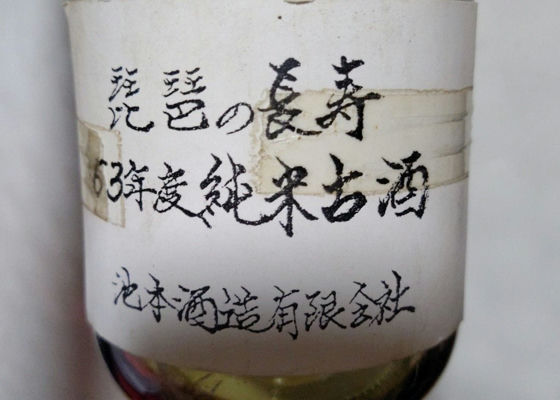 琵琶の長寿
63年度純米古酒
池本酒造有限会社